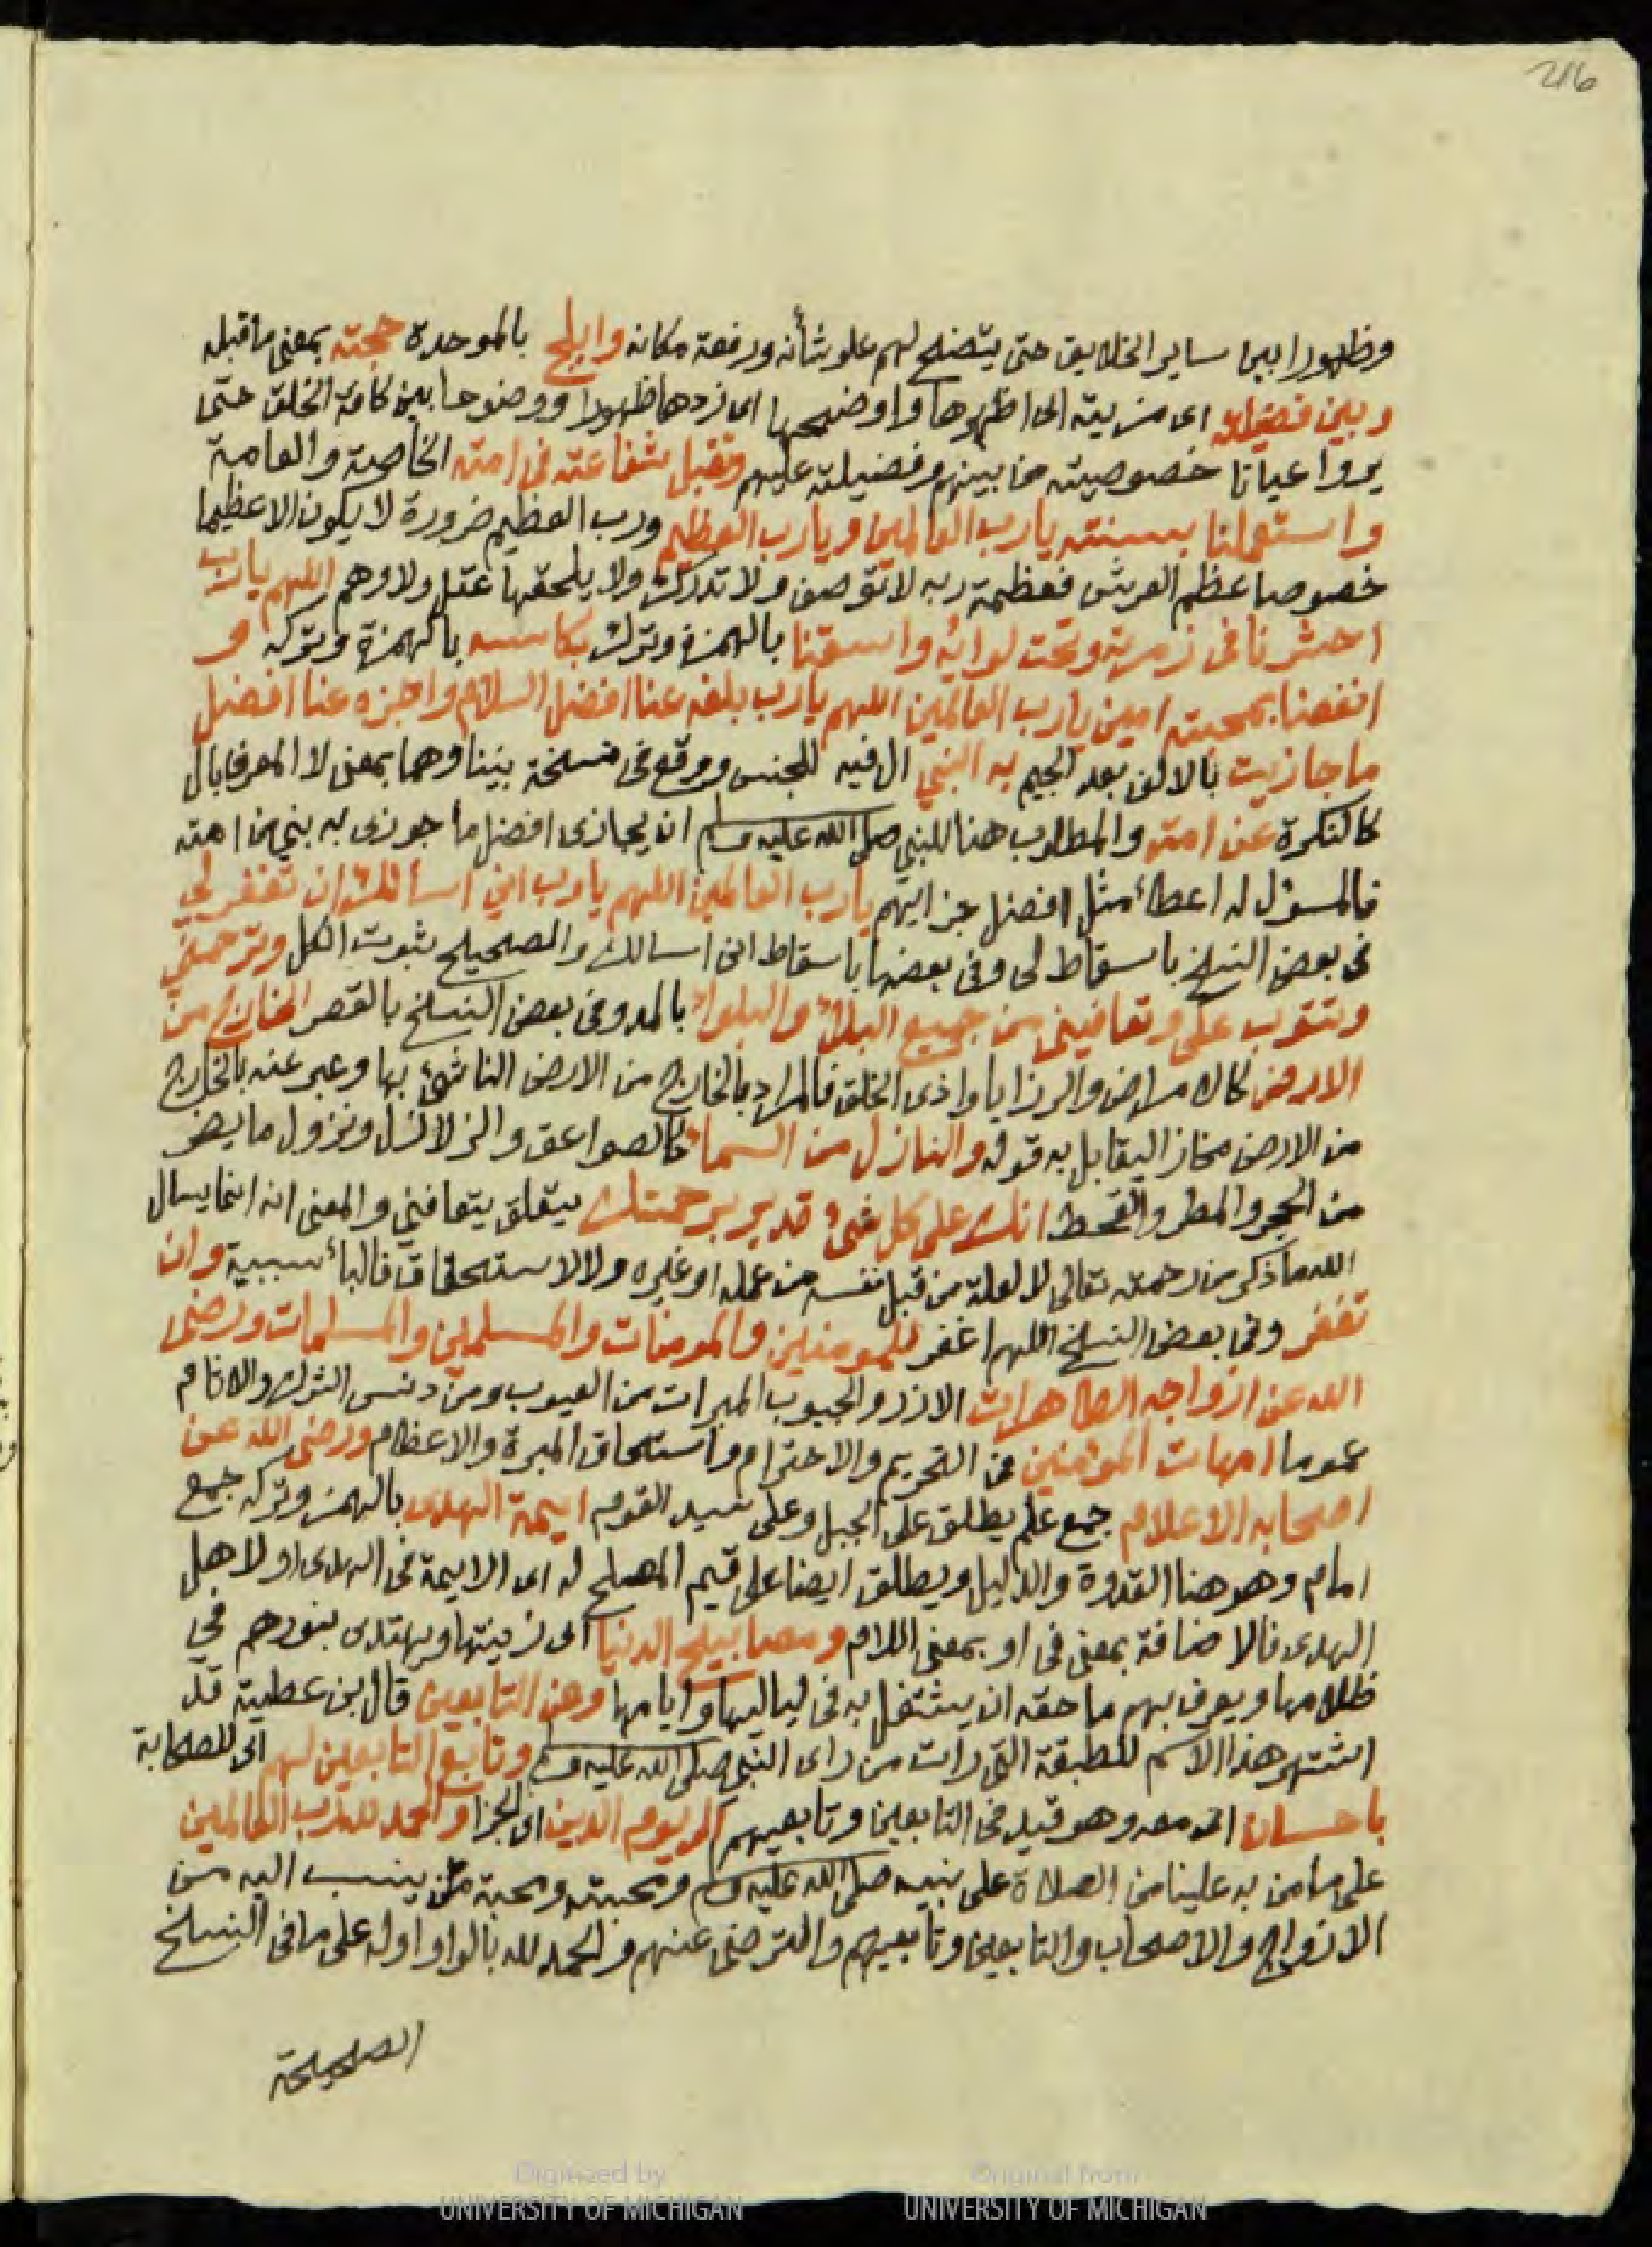 216
وظهورا بين ساير الخلايق حتى يتضح لهم علو شأنه ورفعة مكانه وابلج بالموحدة حجته بمعنى ما قبله
وبين فضيلته اى مزيته اى اظهرها واوضحها اى زدها ظهورا ووضوحا بين كافة الخلق حتى
يروا عيانا خصوصيته من بينهم وفضيلته عليهم وتقبل شفاعته فى امته الخاصة والعامة
واستعملنا بسنته يارب العالمين ويارب العظيم ورب العظيم ضرورة لا يكون الا عظيما
خصوصا عظم العرش فعظمة ربه لا توصف ولا تدرك ولا يلحقها عقل ولا وهم اللهم يارب
احشرنا فى زمرته وتحت لوائه واسقنا بالهمزة وترك بكاسه بالهمزة وتركه و
انفعنا بمحبته امين يارب العالمين اللهم يارب بلغه عنا افضل السلام واجزه عنا افضل
ما جازيت بالالف بعد الجيم به النبي ال فيه للجنس ووقع فى نسخة نبينا وهما بمعنى لا المعرف بال
كالنكرة عن امته والمطلوب هنا للنبي صلى الله عليه وسلم ان يجازى افضل ما جوزى به نبي من امته
فالمسؤل له اعطاء مثل افضل جزايهم يارب العالمين اللهم يارب اني اسألك ان تغفر لي
فى بعض النسخ باسقاط لى وفى بعضها باسقاط انى اسالك والصحيح ثبوت الكل وترحمني
وتتوب على وتعافينى من جميع البلاء والبلواء بالمد وفى بعض النسخ بالقصر الخارج من
الارض كالامراض والرزايا واذى الخلق فالمراد بالخارج من الارض الناشئ بها وعبر عنه بالخارج
من الارض مجازا ليقابل به قوله والنازل من السماء كالصواعق والزلازل ونزول ما يضر
من الحجر والمطر والقحط انك على كل شئ قدير برحمتك يتعلق بتعافيني والمعنى انه انما يسال
الله ما ذكر من رحمته تعالى لا لعلة من قبل نفسه من عمله او غيره ولا لاستحقاق فالباء سببية وان
تغفر وفى بعض النسخ اللهم اغفر للمومنين والمومنات والمسلمين والمسلمات ورضى
الله عن ازواجه الطاهرات الازر والجيوب المبرات من العيوب ومن دنس الشرك والاثام
عموما امهات المومنين فى التحريم والاحترام واستحقاق المبرة والاعظام ورضى الله عن
اصحابه الاعلام جمع علم يطلق على الجبل وعلى سيد القوم ايمة الهدى بالهمز وتركه جمع
امام وهو هنا القدوة والدليل ويطلق ايضا على قيم المصلح له اى الايمة فى الهدى او لاجل
الهدى فالاضافة بمعنى فى او بمعنى اللام ومصابيح الدنيا اى زينتها ويهتدى بنورهم في
ظلامها ويعرف بهم ما حقه ان يشتغل به فى لياليها وايامها وعن التابعين قال بن عطية قد
اشتهر هذا الاسم للطبقة التى رات من راى النبي صلى الله عليه وسلم وتابع التابعين لهم اى للصحابة
باحسان اى معه وهو قيد فى التابعين وتابعيهم الى يوم الدين اى الجزا والحمد لله رب العالمين
على ما من به علينا من الصلاة على نبيه صلى الله عليه وسلم ومحبته ومحبة من ينسب اليه من
الازواج والاصحاب والتابعين وتابعيهم والترضى عنهم والحمد لله بالواو اوله على ما فى النسخ
الصحيحة
Digitized by UNIVERSITY OF MICHIGAN
Original from UNIVERSITY OF MICHIGAN